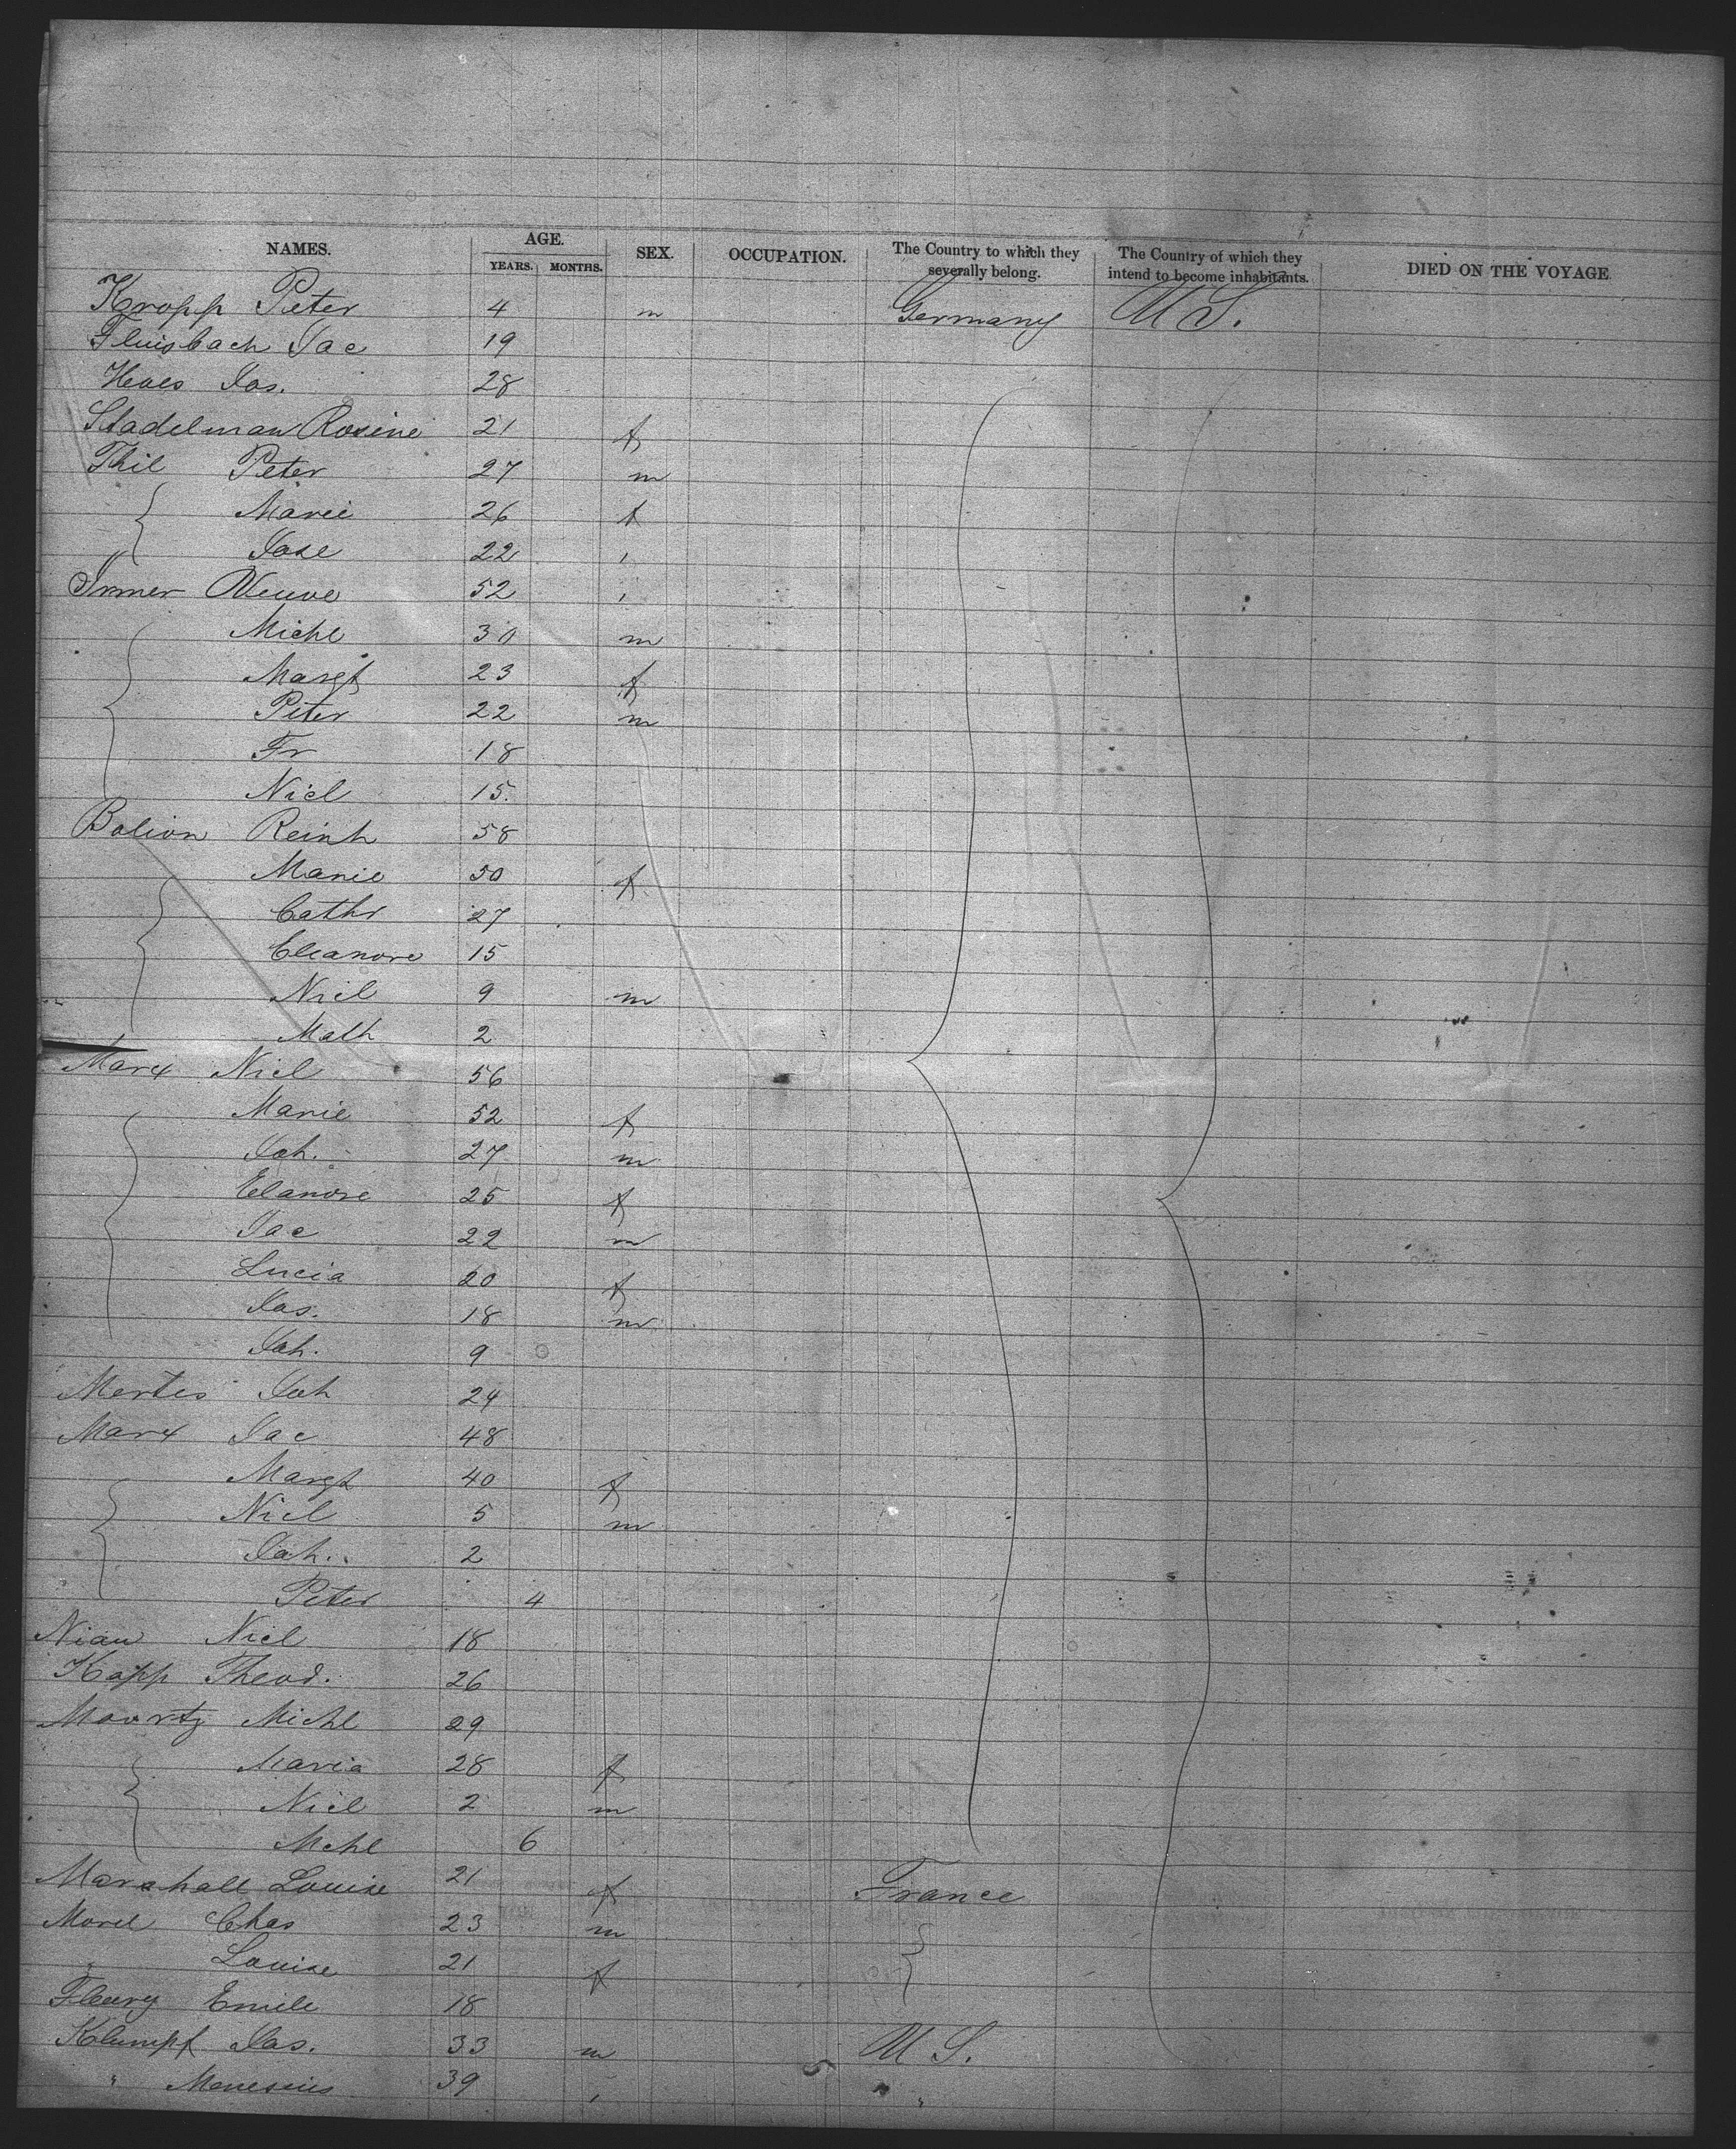 NAMES. AGE. SEX. OCCUPATION. The Country to which they severally belong. The Country of which they intend to become inhabitants. DIED ON THE VOYAGE
YEARS. MONTHS.
Kropp Peter 4 m Germany U S.
Fluisbach Jac 19
Jos. 28
Stadelman Rosine 21 f
Thil Peter 27 m
Marie 26 f
Jose 22 "
Irmer Veuve 52 "
Michl 30 m
Margt 23 f
Peter 22 m
Fr 18
Nicl 15.
Bolion Reinh 58
Marie 50 f
Cathr 27
Eleanore 15
Nicl 9 m
Math 2
Marx Nicl 56
Marie 52 f
Joh. 27 m
Elanore 25 f
Jac 22 m
Lucia 20 f
Jos. 18 m
Joh. 9
Mertes Joh 24
Marx Jac 48
Margt 40 f
Nicl 5 m
Joh. 2
Peter 4
Niau Nicl 18
Kapp Theod. 26
Moortz Michl 29
Maria 28 f
Nicl 2 m
Mchl 6
Marshall Louise 21 f France
Morel Chas 23 m
" Louise 21 f
Fleury Emile 18
Klumpf Jos. 33 m U S.
" 39 " " "